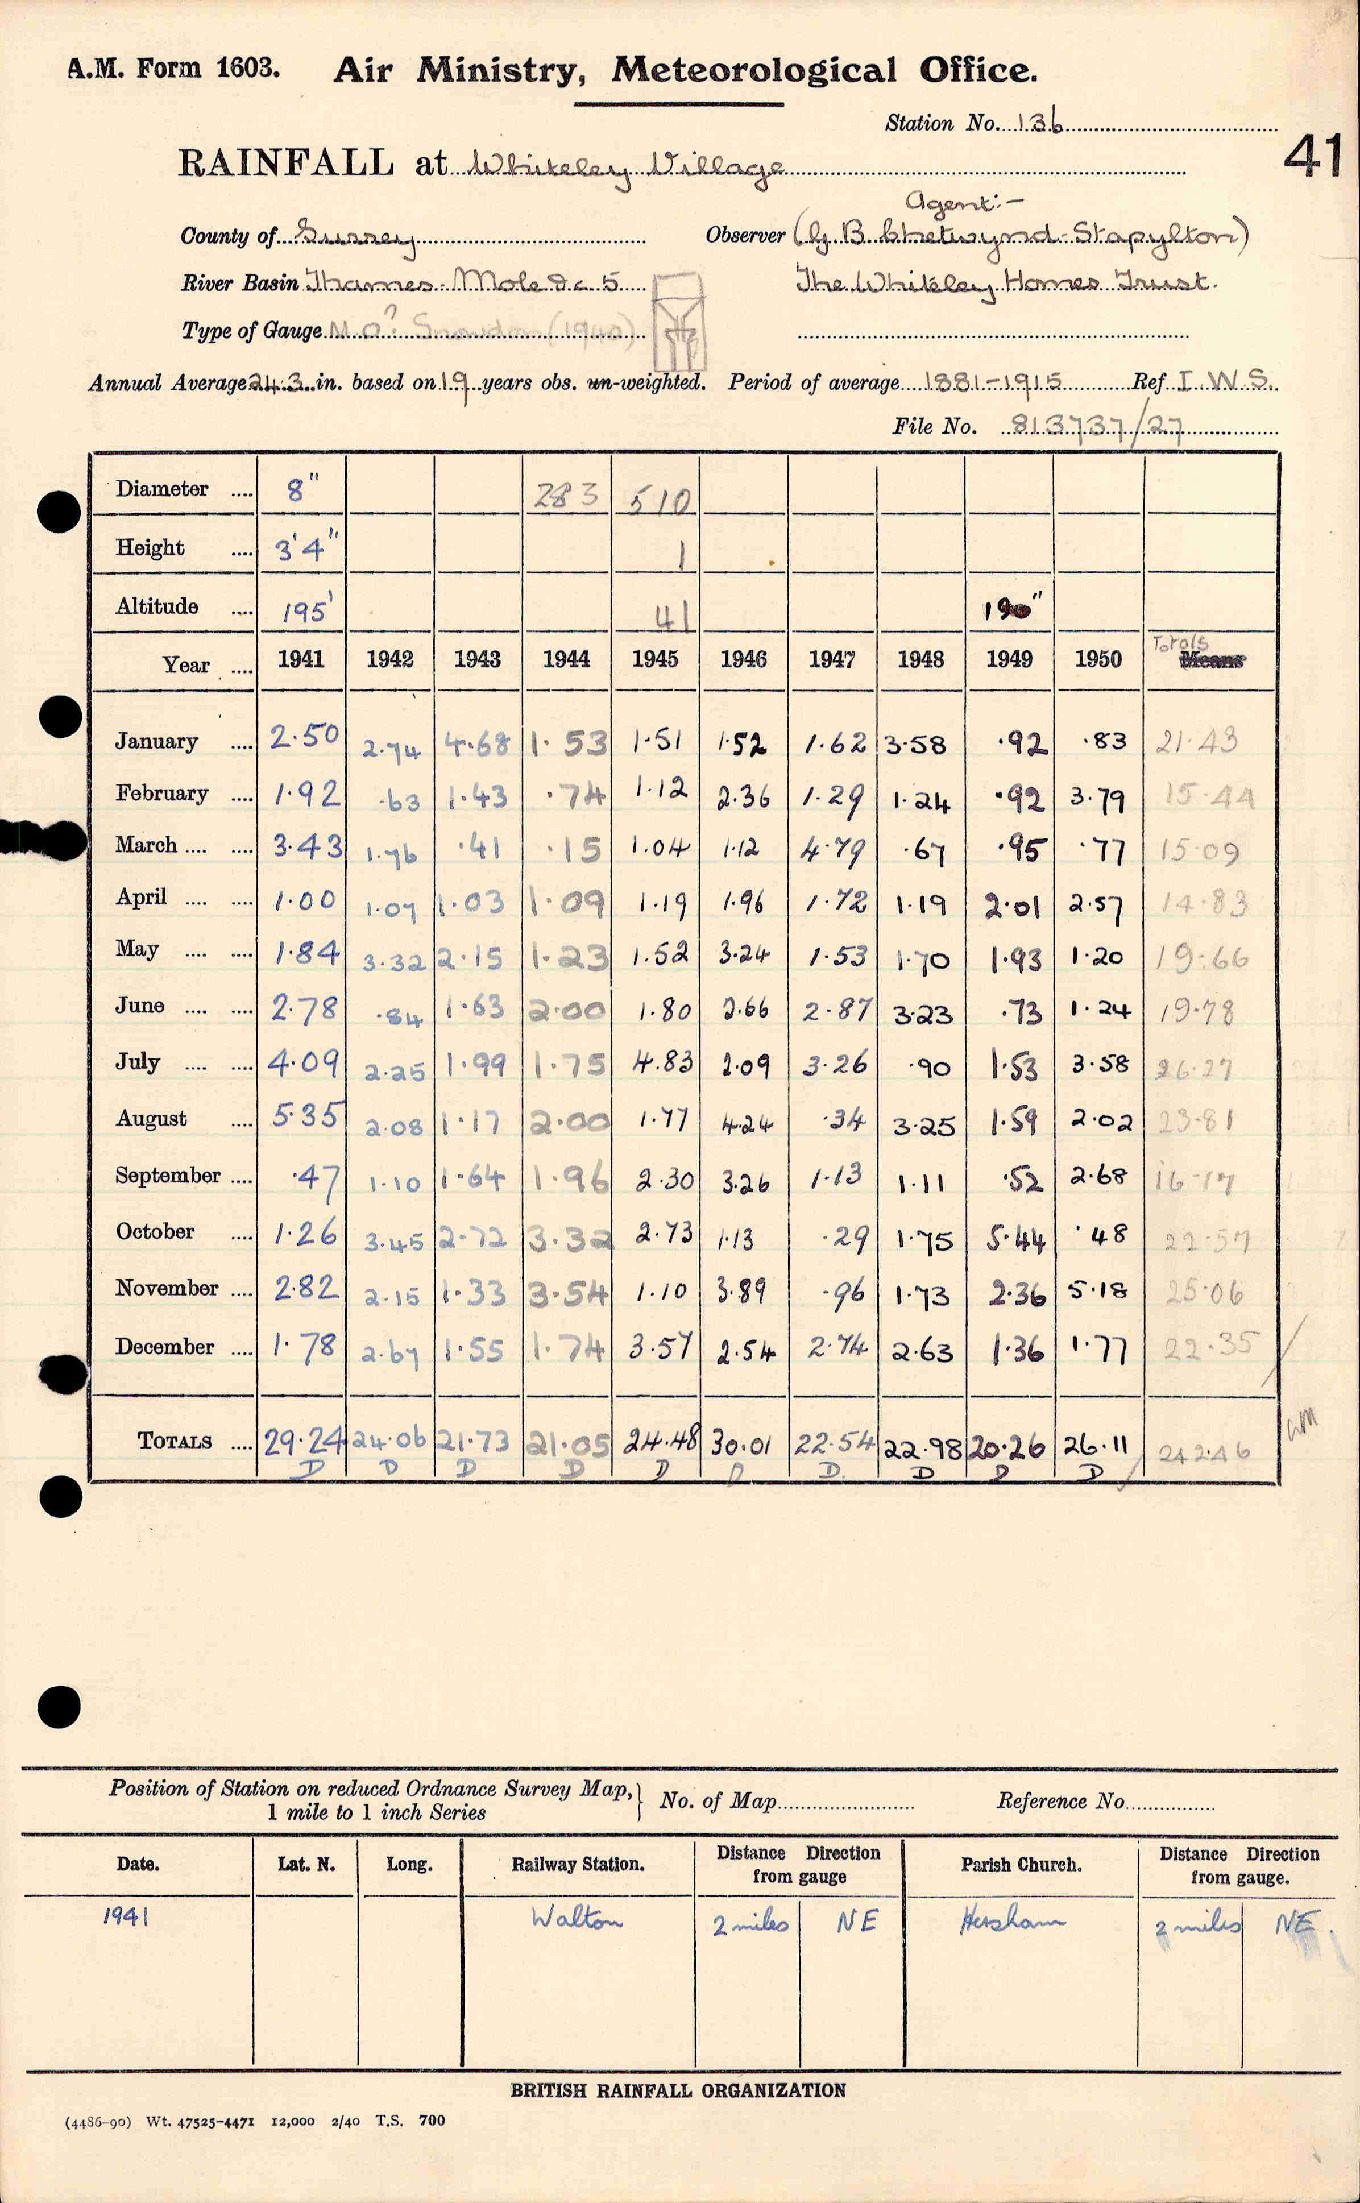 A.M. Form 1603. Air Ministry, Meteorological Office.
Station No. 136
41
RAINFALL at Whiteley Village
Agent:-
County of Surrey Observer (G B Chetwynd-Stapylton)
River Basin Thames. Mole &c 5 The Whiteley Homes Trust.
Type of Gauge M.O? Snowdon (1940)
Annual Average 24.3 in. based on 19 years obs. un-weighted. Period of average 1881-1915 Ref I.W.S.
File No. 813737/27
Diameter .... 8" 283 510
Height .... 3'4" 1
Altitude .... 195' 41 190"
Totals
Year .... 1941 1942 1943 1944 1945 1946 1947 1948 1949 1950 Means
January .... 2.50 2.74 4.68 1.53 1.51 1.52 1.62 3.58 .92 .83 21.43
February .... 1.92 .63 1.43 .74 1.12 2.36 1.29 1.24 .92 3.79 15.44
March .... .... 3.43 1.76 .41 .15 1.04 1.12 4.79 .67 .95 .77 15.09
April .... .... 1.00 1.07 1.03 1.09 1.19 1.96 1.72 1.19 2.01 2.57 14.83
May .... .... 1.84 3.32 2.15 1.23 1.52 3.24 1.53 1.70 1.93 1.20 19.66
June .... .... 2.78 .84 1.63 2.00 1.80 2.66 2.87 3.23 .73 1.24 19.78
July .... .... 4.09 2.25 1.99 1.75 4.83 2.09 3.26 .90 1.53 3.58 26.27
August .... 5.35 2.08 1.17 2.00 1.77 4.24 .34 3.25 1.59 2.02 23.81
September .... .47 1.10 1.64 1.96 2.30 3.26 1.13 1.11 .52 2.68 16.17
October .... 1.26 3.45 2.72 3.32 2.73 1.13 .29 1.75 5.44 .48 22.57
November .... 2.82 2.15 1.33 3.54 1.10 3.89 .96 1.73 2.36 5.18 25.06
December .... 1.78 2.67 1.55 1.74 3.57 2.54 2.74 2.63 1.36 1.77 22.35
TOTALS .... 29.24 24.06 21.73 21.05 24.48 30.01 22.54 22.98 20.26 26.11 242.46
D D D D D D D. D D D
Position of Station on reduced Ordnance Survey Map, } No. of Map Reference No.
1 mile to 1 inch Series
Date. Lat. N. Long. Railway Station. Distance Direction from gauge Parish Church. Distance Direction from gauge.
1941 Walton 2 miles NE Hersham 2 miles NE.
BRITISH RAINFALL ORGANIZATION
(4486-90) Wt. 47525-4471 12,000 2/40 T.S. 700